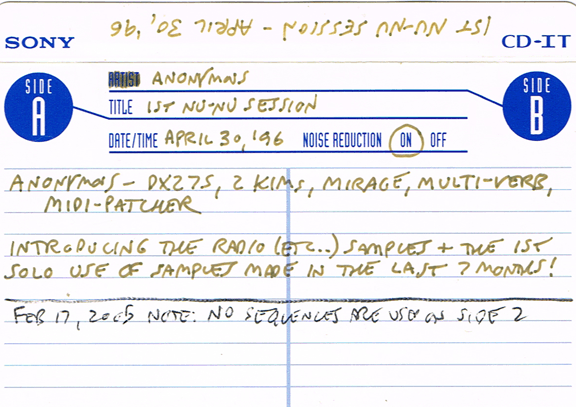 1ST NU-NU SESSION - APRIL 30, '96
SONY
CD-IT
SIDE A
SIDE B
ARTIST ANONYMOUS
TITLE 1ST NU-NU SESSION
DATE/TIME APRIL 30, '96 NOISE REDUCTION ON OFF
ANONYMOUS - DX27S, 2 KIMS, MIRAGE, MULTI-VERB,
MIDI-PATCHER
INTRODUCING THE RADIO (ETC..) SAMPLES + THE 1ST
SOLO USE OF SAMPLES MADE IN THE LAST 7 MONTHS!
FEB 17, 2005 NOTE: NO SEQUENCES ARE USE ON SIDE 2